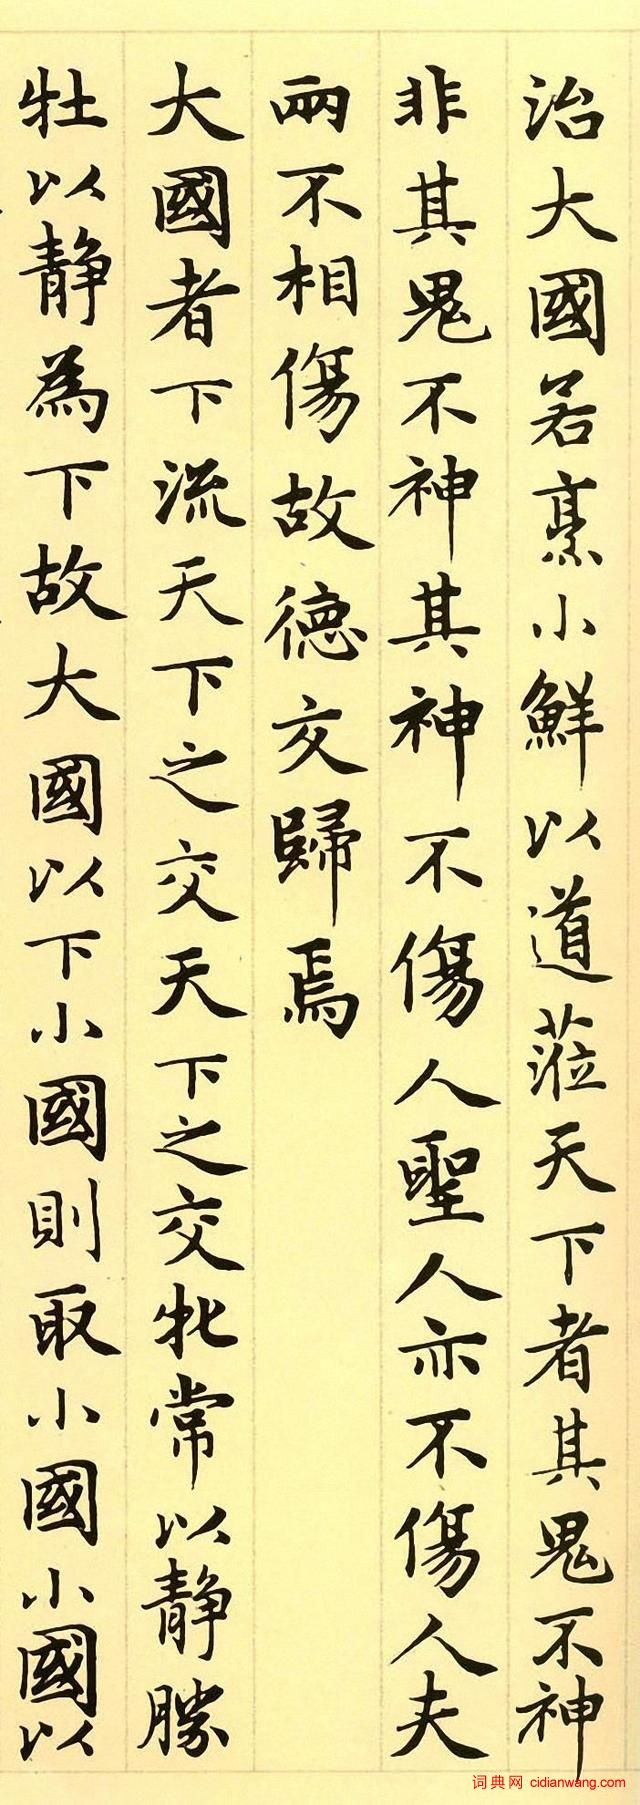 治大國若烹小鮮以道蒞天下者其鬼不神
非其鬼不神其神不傷人聖人亦不傷人夫
兩不相傷故德交歸焉
大國者下流天下之交天下之交牝常以靜勝
牡以靜為下故大國以下小國則取小國小國以
词典网 cidianwang.com